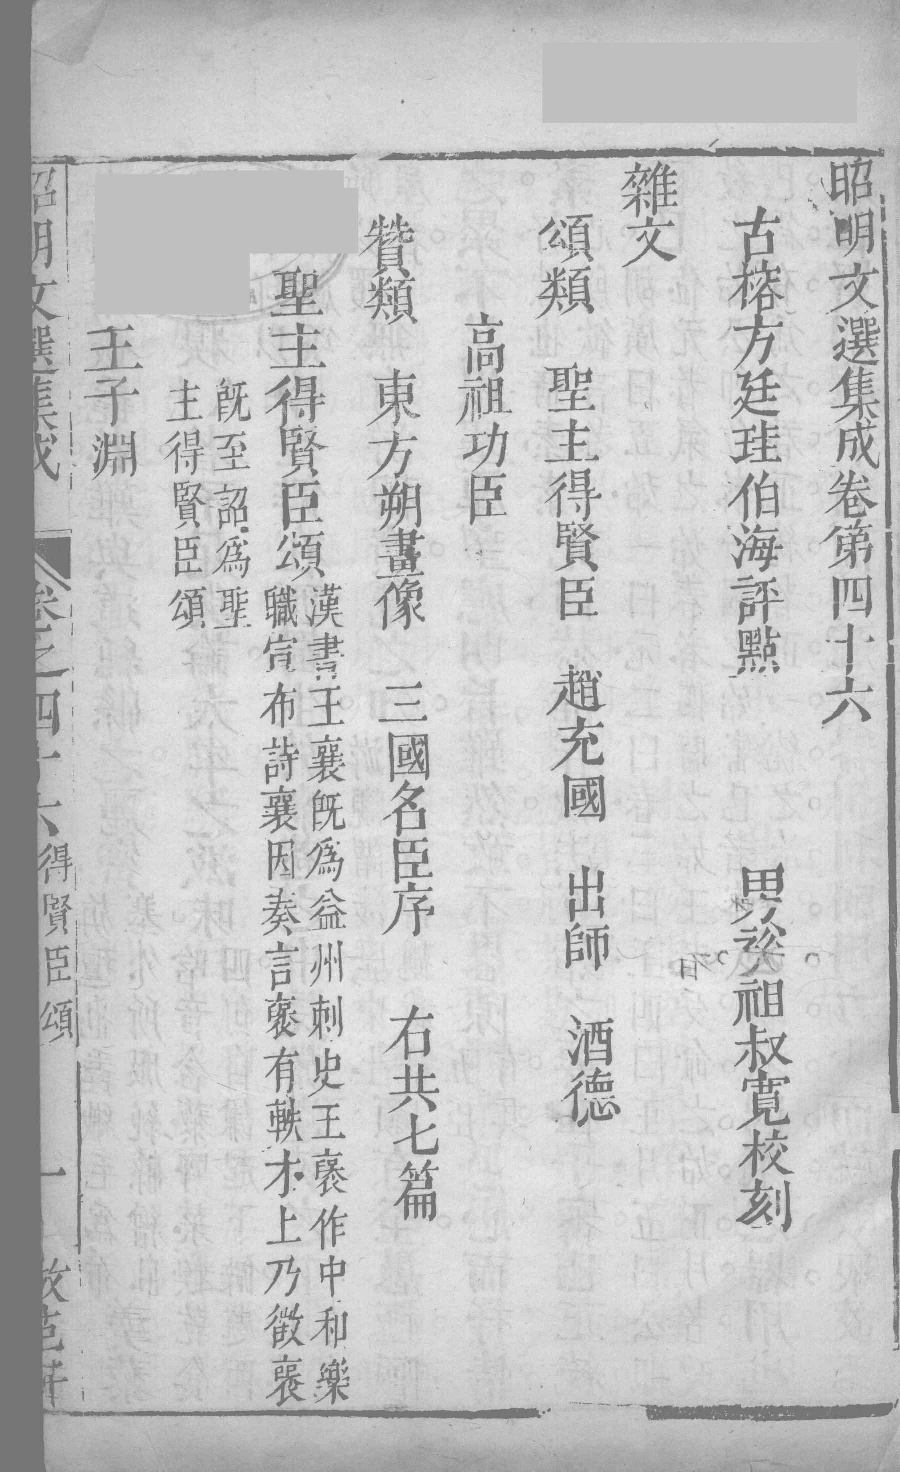 昭明文選集成卷第四十六
古榕方廷珪伯海評點　男　祖叔寬校刻
雜文
頌類　聖主得賢臣　趙充國　出師　酒德
高祖功臣
贊類　東方朔畫像　三國名臣序　右共七篇
聖主得賢臣頌
漢書王襄既為益州刺史王褒作中和樂
職宣布詩襄因奏言褒有軼才上乃徵褒
既至詔為聖
主得賢臣頌
王子淵
昭明文選集成　卷之四十六　得賢臣頌　一　倣范軒